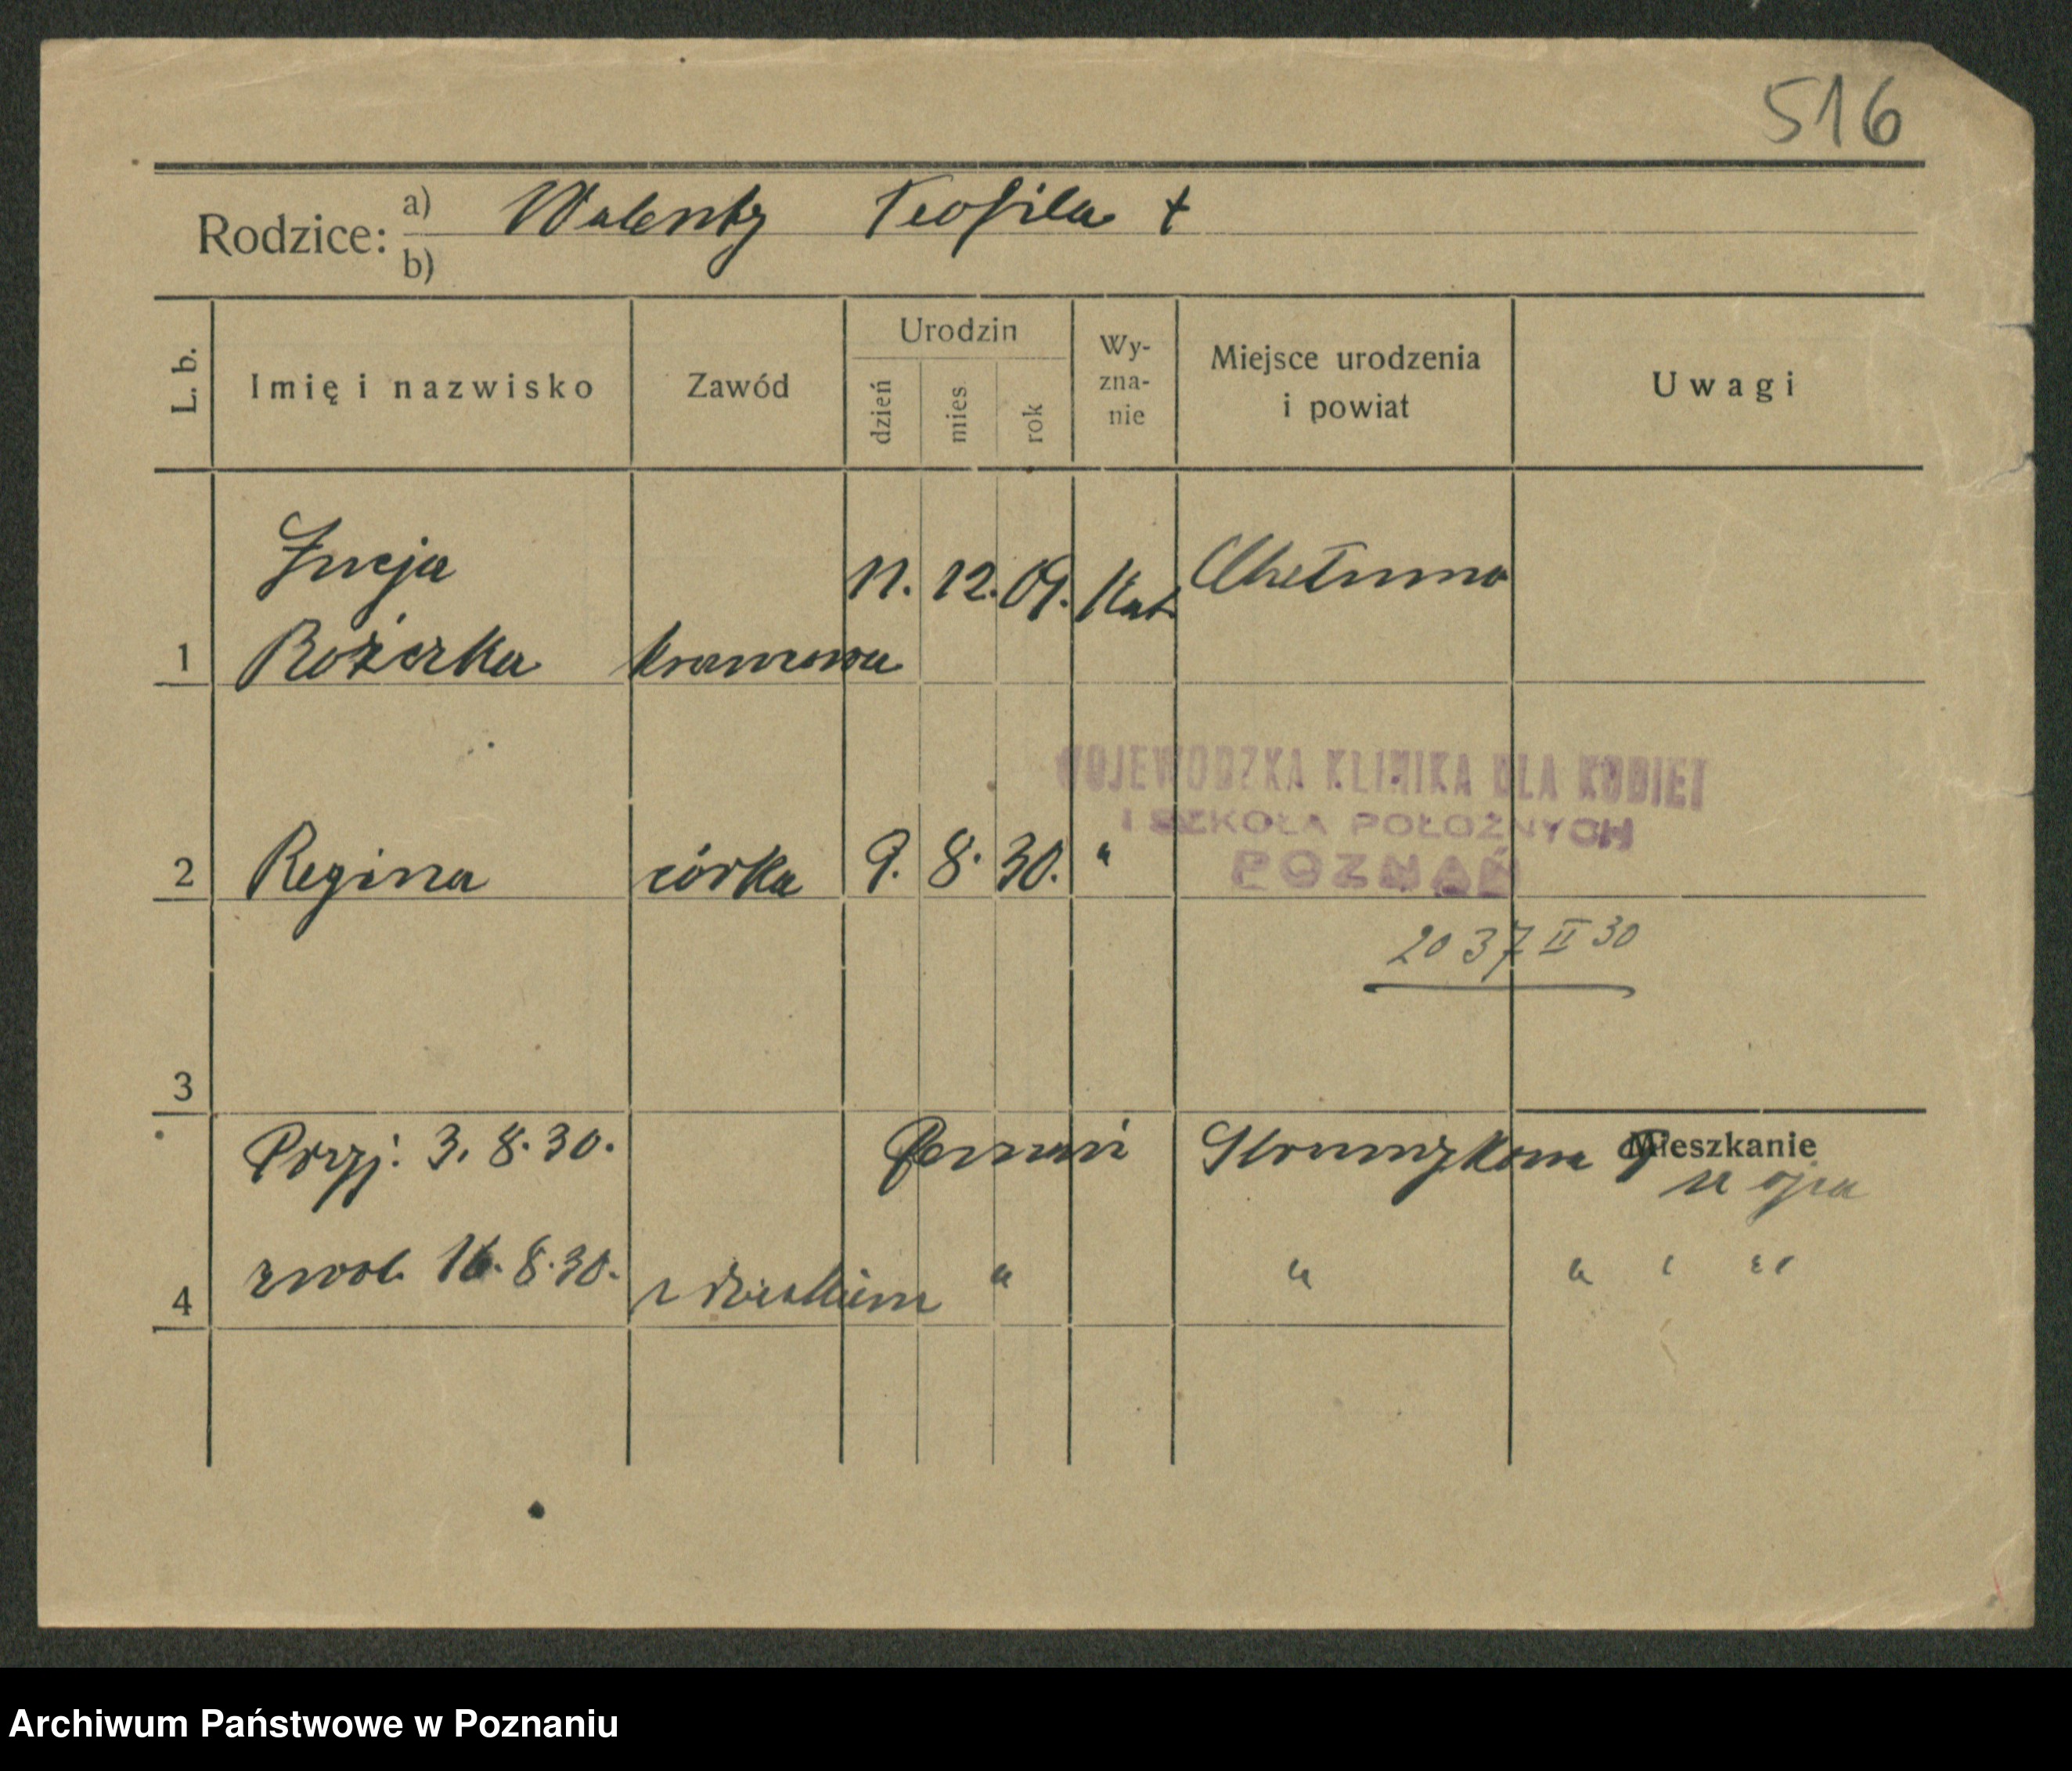 516
Rodzice: a) Walenty Teofila +
b)
L. b. Imię i nazwisko Zawód Urodzin dzień mies rok Wy-zna-nie Miejsce urodzenia i powiat Uwagi
Łucja 11. 12. 09. Kat. Chełmno
1 Rożerka krawcowa
WOJEWÓDZKA KLINIKA DLA KOBIET
I SZKOŁA POŁOŻNYCH
POZNAŃ
2 Regina córka 9. 8. 30. "
2037 II 30
3
Przyj: 3. 8. 30. Poznań Strumykowa Mieszkanie
u ojca
zwol. 16. 8. 30. " " " " "
4 z dzieckiem
Archiwum Państwowe w Poznaniu